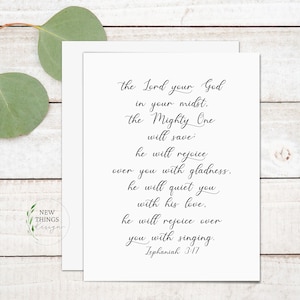 the Lord your God
in your midst,
the Mighty One
will save;
he will rejoice
over you with gladness,
he will quiet you
with his love,
he will rejoice over
you with singing.
Zephaniah 3:17
NEW
THINGS
designs